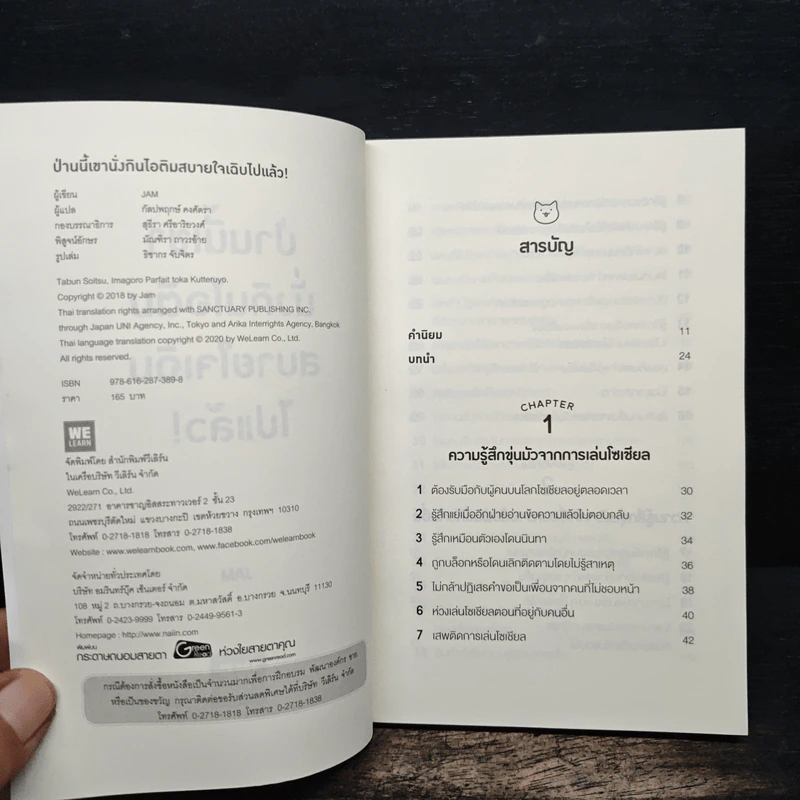 ป่านนี้เขานั่งกินไอติมสบายใจเฉิบไปแล้ว!
ผู้เขียน JAM
ผู้แปล กัลปพฤกษ์ คงศัตรา
กองบรรณาธิการ สุธีรา ศรีอาริยวงศ์
พิสูจน์อักษร มัณฑิรา ถาวรย้าย
รูปเล่ม ธิชากร จับจิตร
Tabun Soitsu, Imagoro Parfait toka Kutteruyo.
Copyright © 2018 by Jam
Thai translation rights arranged with SANCTUARY PUBLISHING INC.
through Japan UNI Agency, Inc., Tokyo and Arika Interrights Agency, Bangkok
Thai language translation copyright © 2020 by WeLearn Co., Ltd.
All rights reserved.
ISBN 978-616-287-389-8
ราคา 165 บาท
WE
LEARN
จัดพิมพ์โดย สำนักพิมพ์วีเลิร์น
ในเครือบริษัท วีเลิร์น จำกัด
WeLearn Co., Ltd.
2922/291 อาคารชาญอิสสระทาวเวอร์ 2 ชั้น 23
ถนนเพชรบุรีตัดใหม่ แขวงบางกะปิ เขตห้วยขวาง กรุงเทพฯ 10310
โทรศัพท์ 0-2718-1818 โทรสาร 0-2718-1838
Website : www.welearnbook.com, www.facebook.com/welearnbook
จัดจำหน่ายทั่วประเทศโดย
บริษัท อมรินทร์บุ๊ค เซ็นเตอร์ จำกัด
108 หมู่ 2 ถ.บางกรวย-จงถนอม ต.มหาสวัสดิ์ อ.บางกรวย จ.นนทบุรี 11130
โทรศัพท์ 0-2423-9999 โทรสาร 0-2449-9561-3
Homepage : http://www.naiin.com
พิมพ์บน
กระดาษถนอมสายตา Green Read ห่วงใยสายตาคุณ
www.greenread.com
กรณีต้องการสั่งซื้อหนังสือเป็นจำนวนมากเพื่อการฝึกอบรม พัฒนาองค์กร ขาย
หรือเป็นของขวัญ กรุณาติดต่อขอรับส่วนลดพิเศษได้ที่บริษัท วีเลิร์น จำกัด
โทรศัพท์ 0-2718-1818 โทรสาร 0-2718-1838
สารบัญ
คำนิยม 11
บทนำ 24
CHAPTER
1
ความรู้สึกขุ่นมัวจากการเล่นโซเชียล
1 ต้องรับมือกับผู้คนบนโลกโซเชียลอยู่ตลอดเวลา 30
2 รู้สึกแย่เมื่ออีกฝ่ายอ่านข้อความแล้วไม่ตอบกลับ 32
3 รู้สึกเหมือนตัวเองโดนนินทา 34
4 ถูกบล็อกหรือโดนเลิกติดตามโดยไม่รู้สาเหตุ 36
5 ไม่กล้าปฏิเสธคำขอเป็นเพื่อนจากคนที่ไม่ชอบหน้า 38
6 ห่วงเล่นโซเชียลตอนที่อยู่กับคนอื่น 40
7 เสพติดการเล่นโซเชียล 42